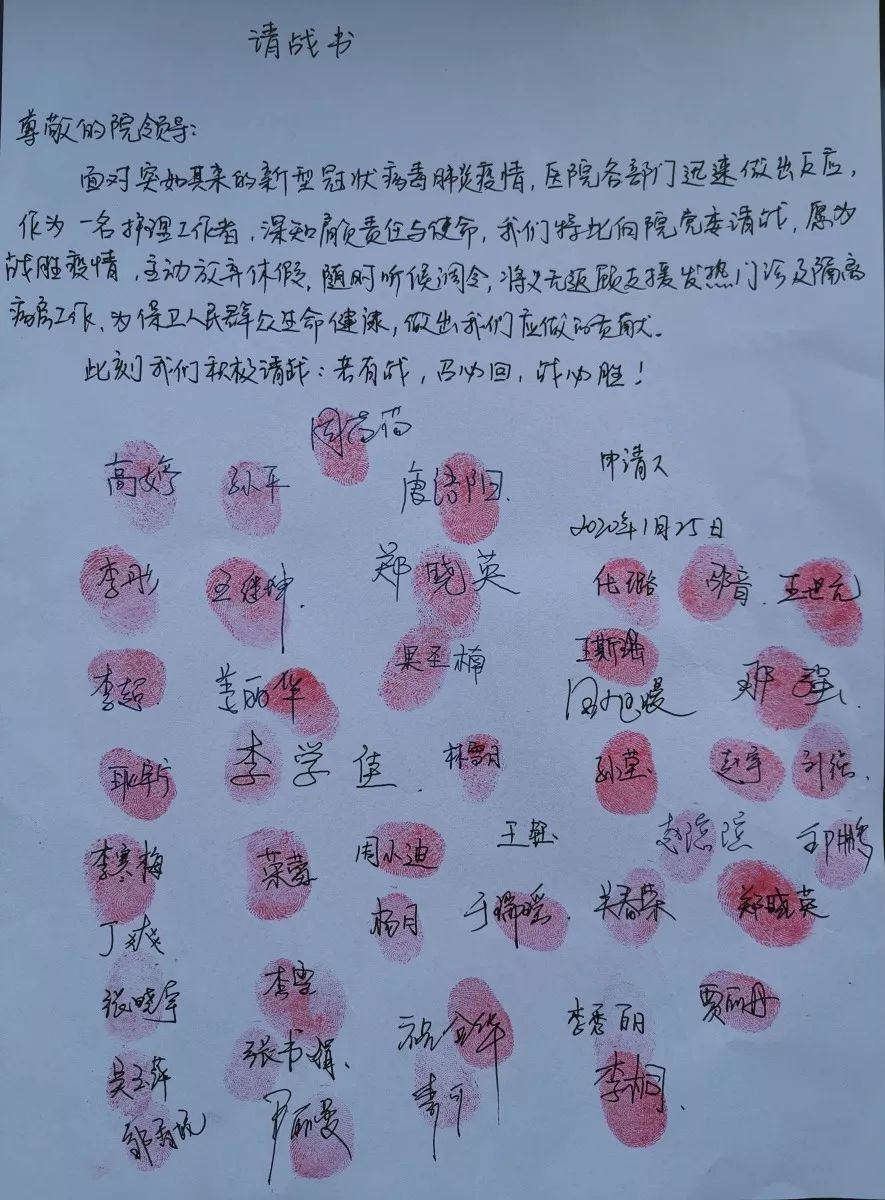 请战书
尊敬的院领导:
面对突如其来的新型冠状病毒肺炎疫情,医院各部门迅速做出反应,
作为一名护理工作者,深知肩负责任与使命,我们特此向院党委请战,愿为
战胜疫情,主动放弃休假,随时听候调令,将义无返顾支援发热门诊及隔离
病房工作、为保卫人民群众生命健康,做出我们应做的贡献。
此刻我们积极请战:若有战,召必回,战必胜!
高婷 孙平 唐语阳.
申请人
2020年1月25日
李彤 王继坤. 郑晓英 化璐 王世元
李超 姜丽华 吴圣楠 王斯瑶
李学佳. 林雪月 孙莹. 赵宇
李寒梅 菜蕊 周小迪 王钰.
丁爽 杨月 于瑞瑶. 关春荣 郑晓英
张晓宇 李雪 李秀丽 贾丽丹
吴玉萍 张书娟、 李桐.
罗丽曼